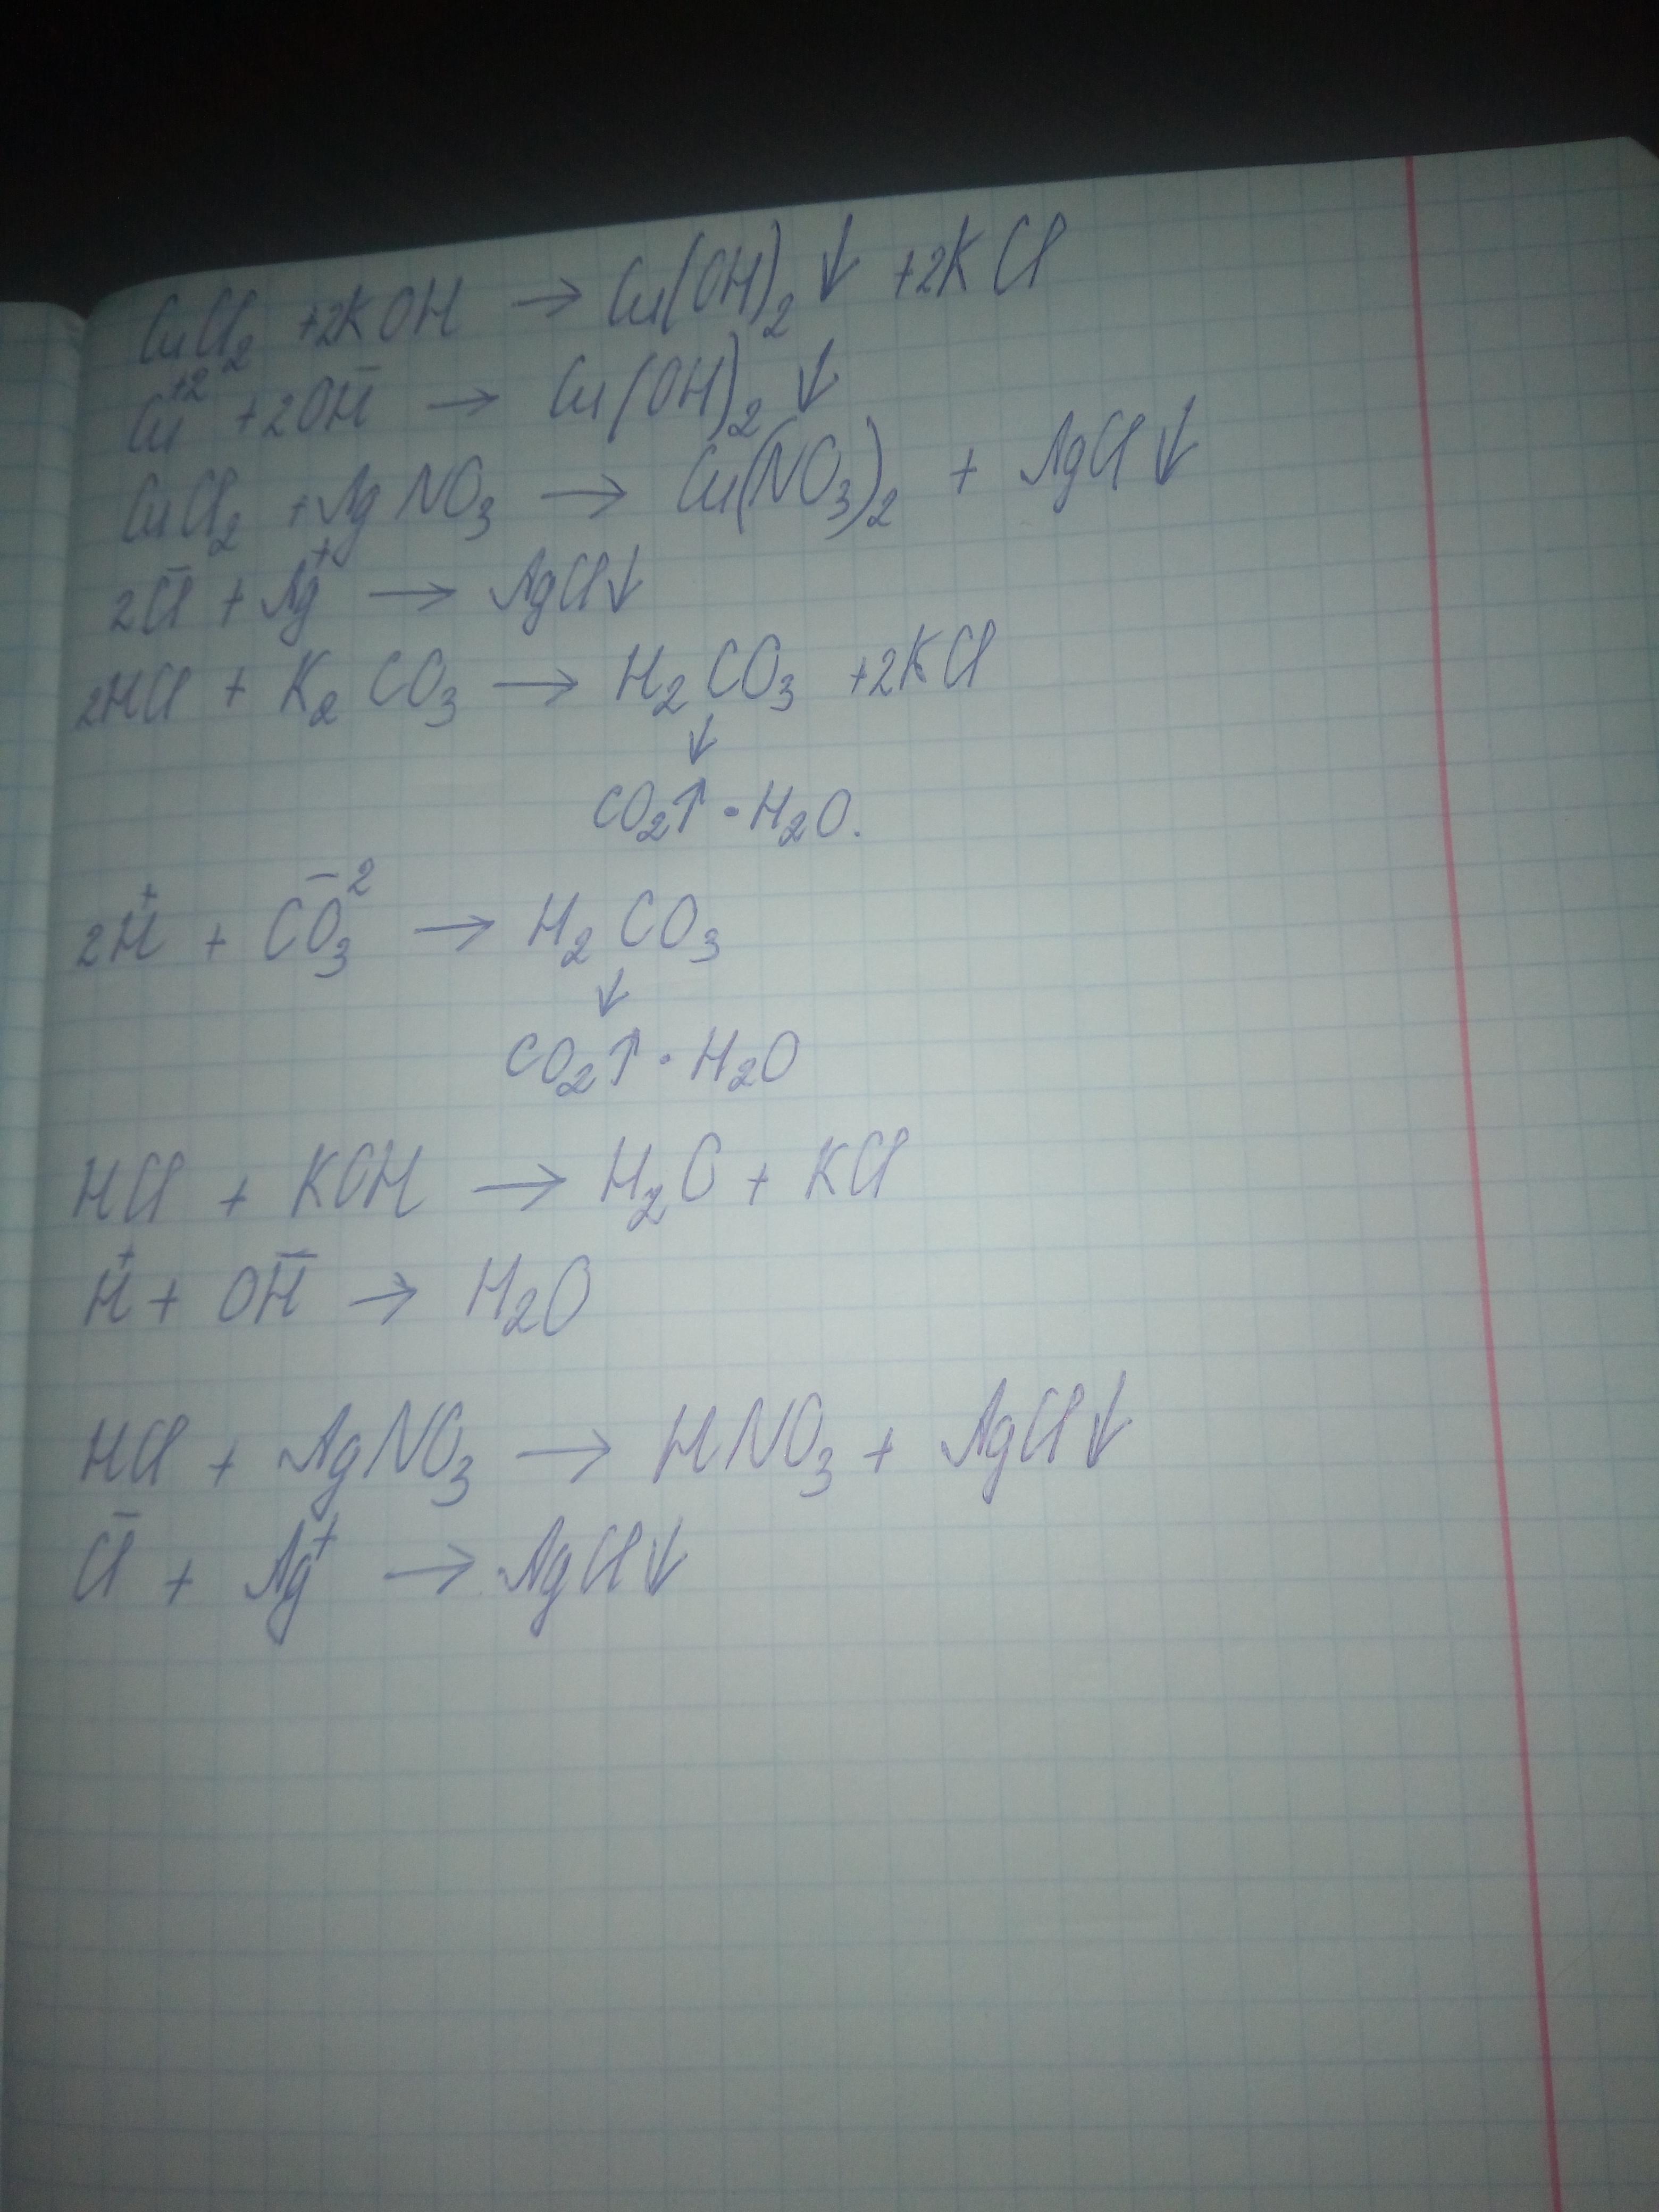 CuCl₂ +2KOH → Cu(OH)₂↓ +2KCl
Cu⁺² +2OH⁻ → Cu(OH)₂↓
CuCl₂ +AgNO₃ → Cu(NO₃)₂ + AgCl↓
2Cl⁻ + Ag⁺ → AgCl↓
2HCl + K₂CO₃ → H₂CO₃ +2KCl
↓
CO₂↑·H₂O.
2H⁺ + CO₃⁻² → H₂CO₃
↓
CO₂↑·H₂O
HCl + KOH → H₂O + KCl
H⁺ + OH⁻ → H₂O
HCl + AgNO₃ → HNO₃ + AgCl↓
Cl⁻ + Ag⁺ → AgCl↓